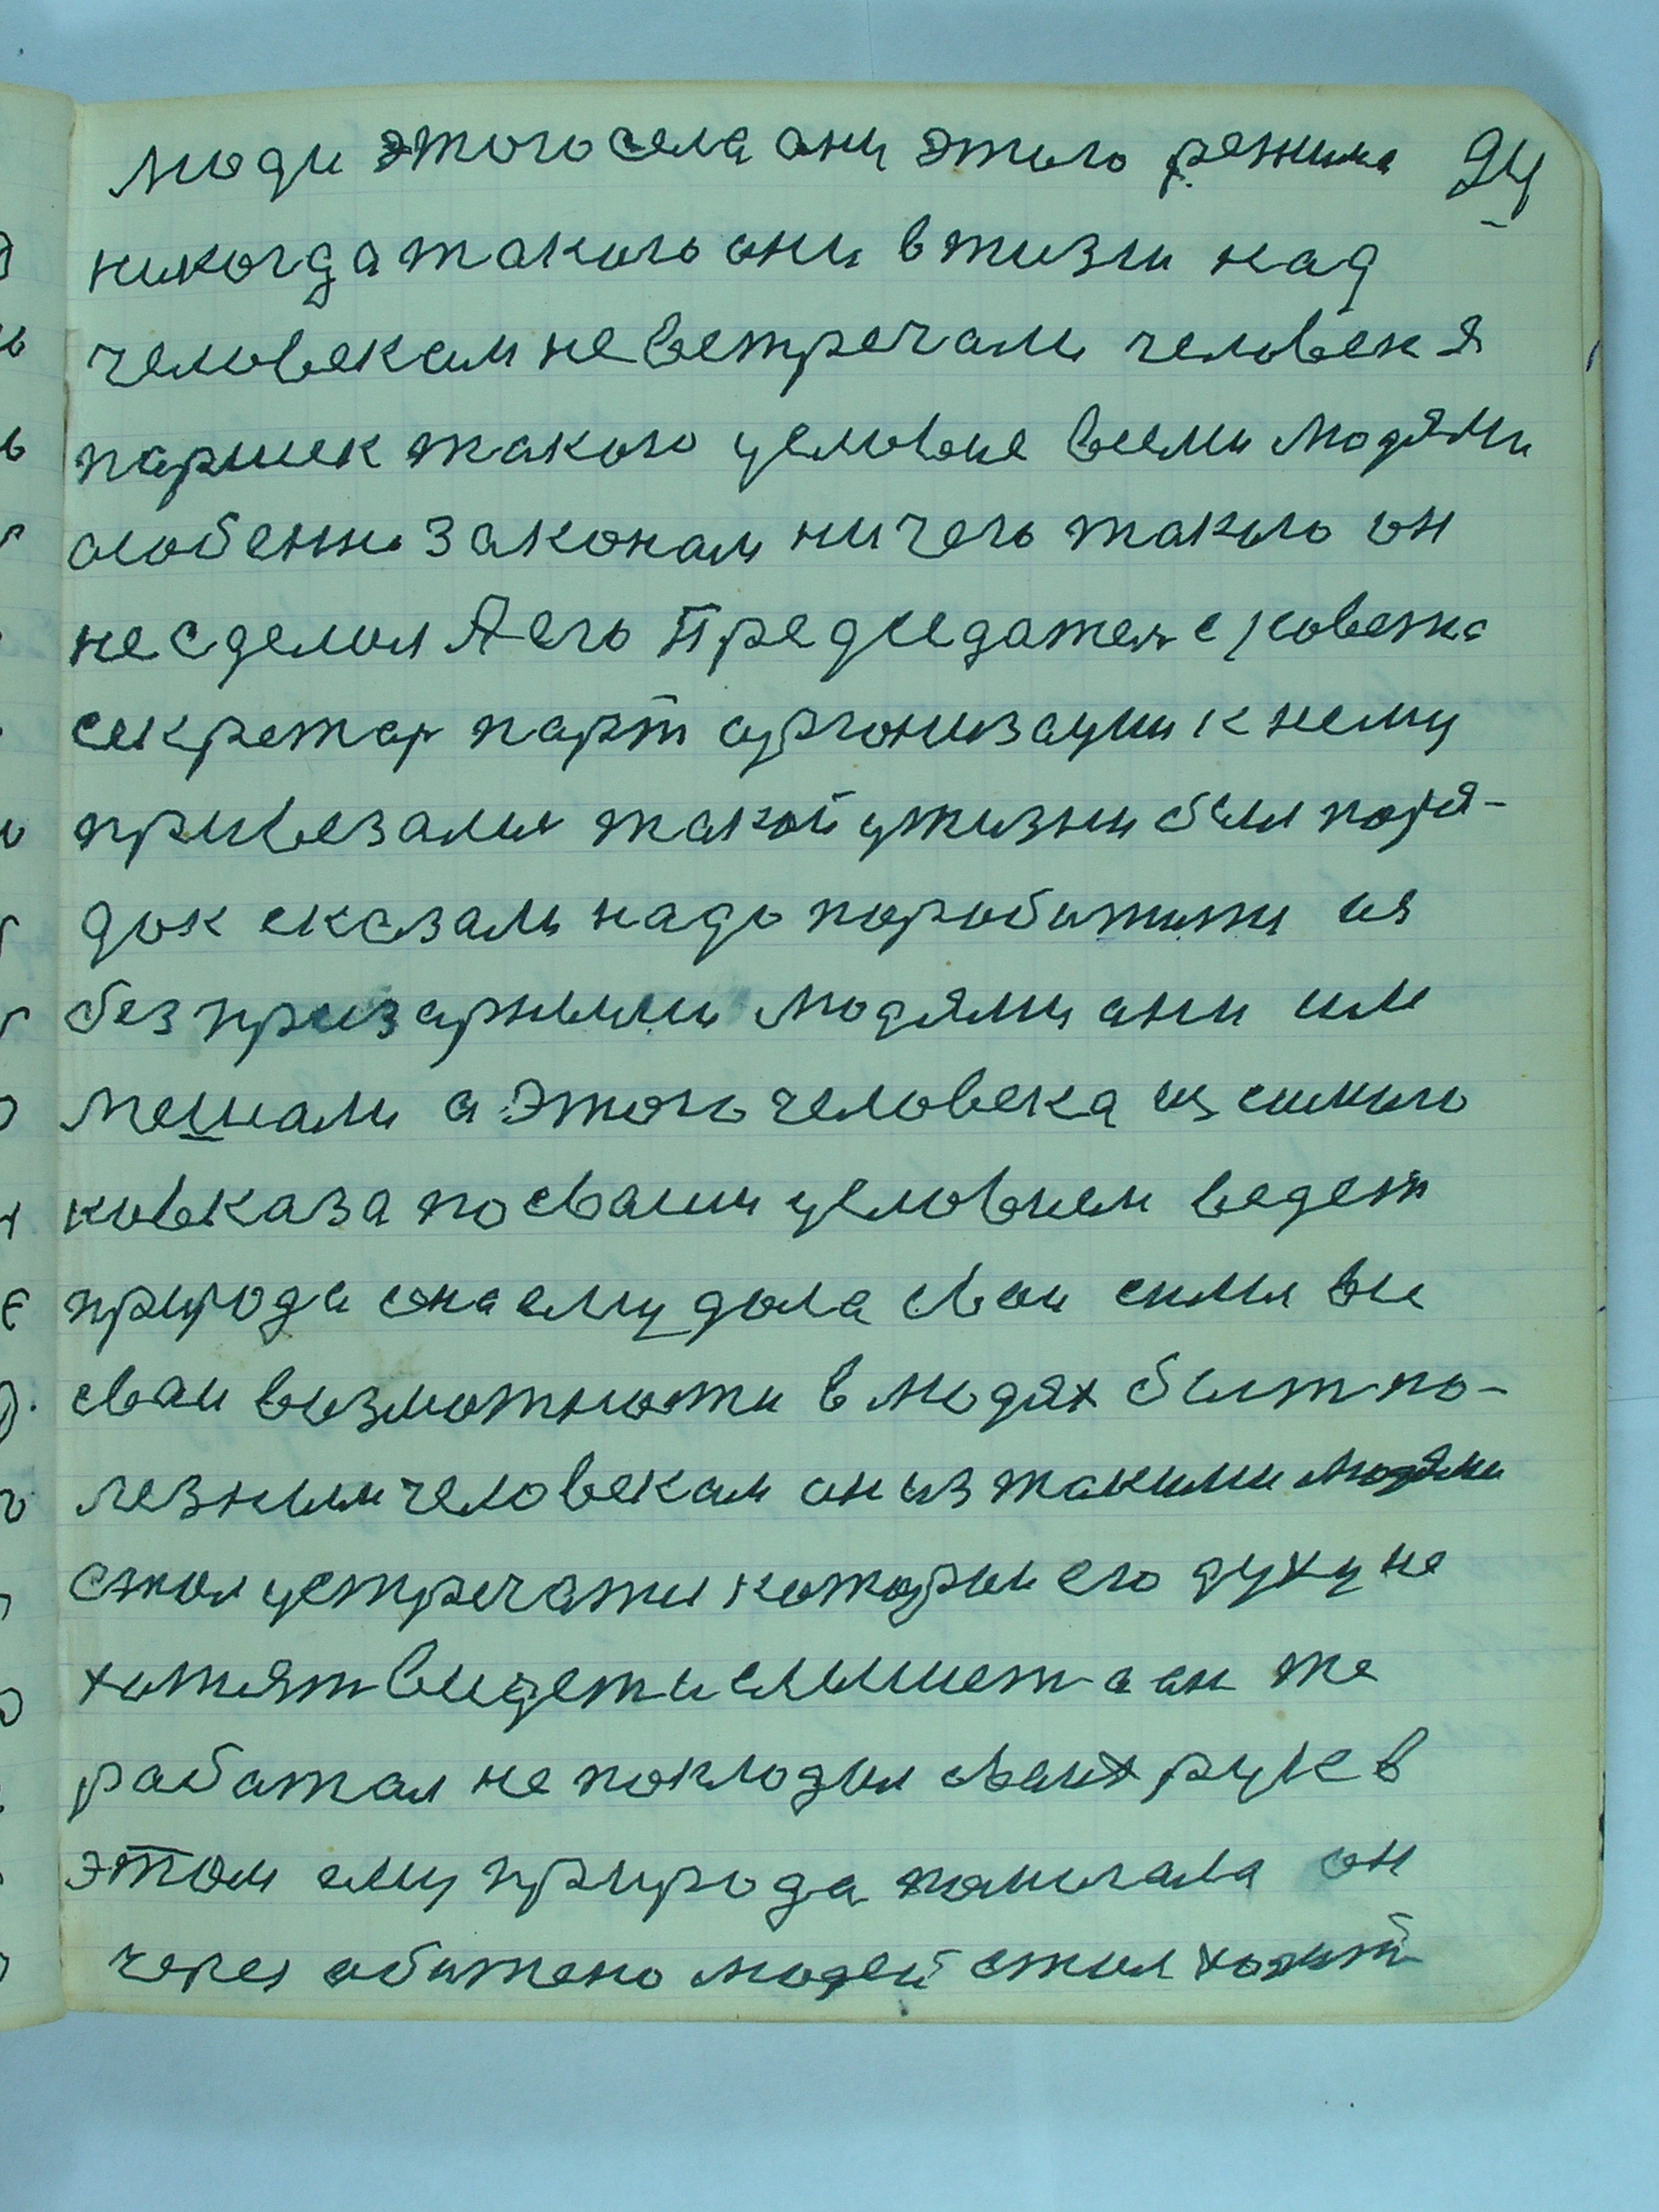 люди этого села они этого режима 24
никогда такого они в жизни над
человекам не встречали человек я
паршек такого условие всеми людями
особенно законам ничего такого он
не сделал А его Предцедатель с ровета
секретар парт аргонизации к нему
привезалис такой ужизни был поря-
док сказали надо поробитити из
без призарними людями они им
мешали а этого человека из симого
кавказа по сваим условием ведет
природа она ему дала сваи сили вси
сваи возможности в людях бит по-
лезним человекам он из такими людями
стал устречати которие его духу не
хотят видети слышет а он же
работал не покладал сваих рук в
этом ему природа помогала он
через обижено людей стал ходит